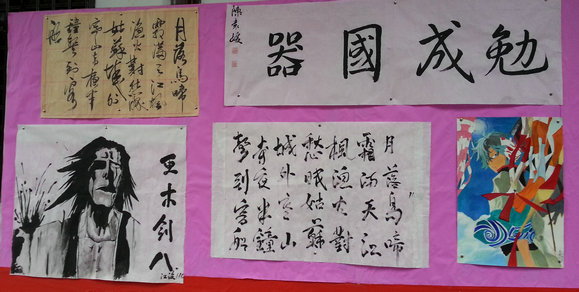 月落烏啼
霜滿天江楓
漁火對愁眠
姑蘇城外
寒山寺夜半
鐘聲到客
船
勉成國器
更木剑八
月落烏啼
霜滿天江
楓漁火對
愁眠姑蘇
城外寒山
寺夜半鐘
聲到客船